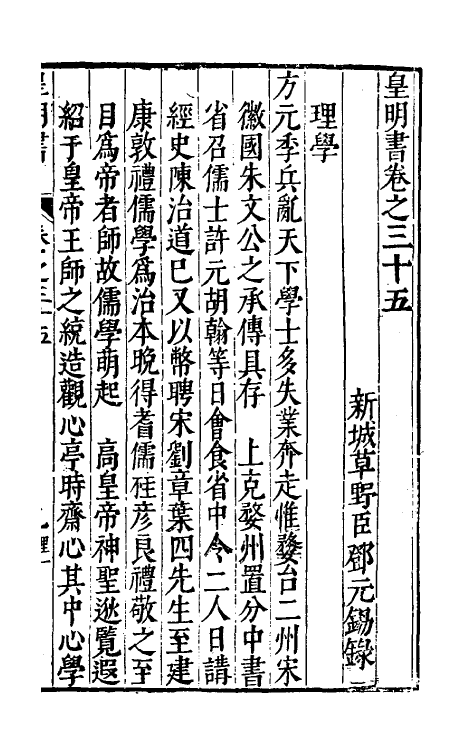 皇明書卷之三十五
新城草野臣鄧元錫錄
理學
方元季兵亂天下學士多失業奔走惟婺台二州宋
徽國朱文公之承傳具存　上克婺州置分中書
省召儒士許元胡翰等日會食省中令二人日講
經史陳治道已又以幣聘宋劉章葉四先生至建
康敦禮儒學爲治本晚得耆儒桂彦良禮敬之至
目爲帝者師故儒學萌起　高皇帝神聖逖覽遐
紹于皇帝王師之統造觀心亭時齋心其中心學
皇明書　卷之三十五　理一